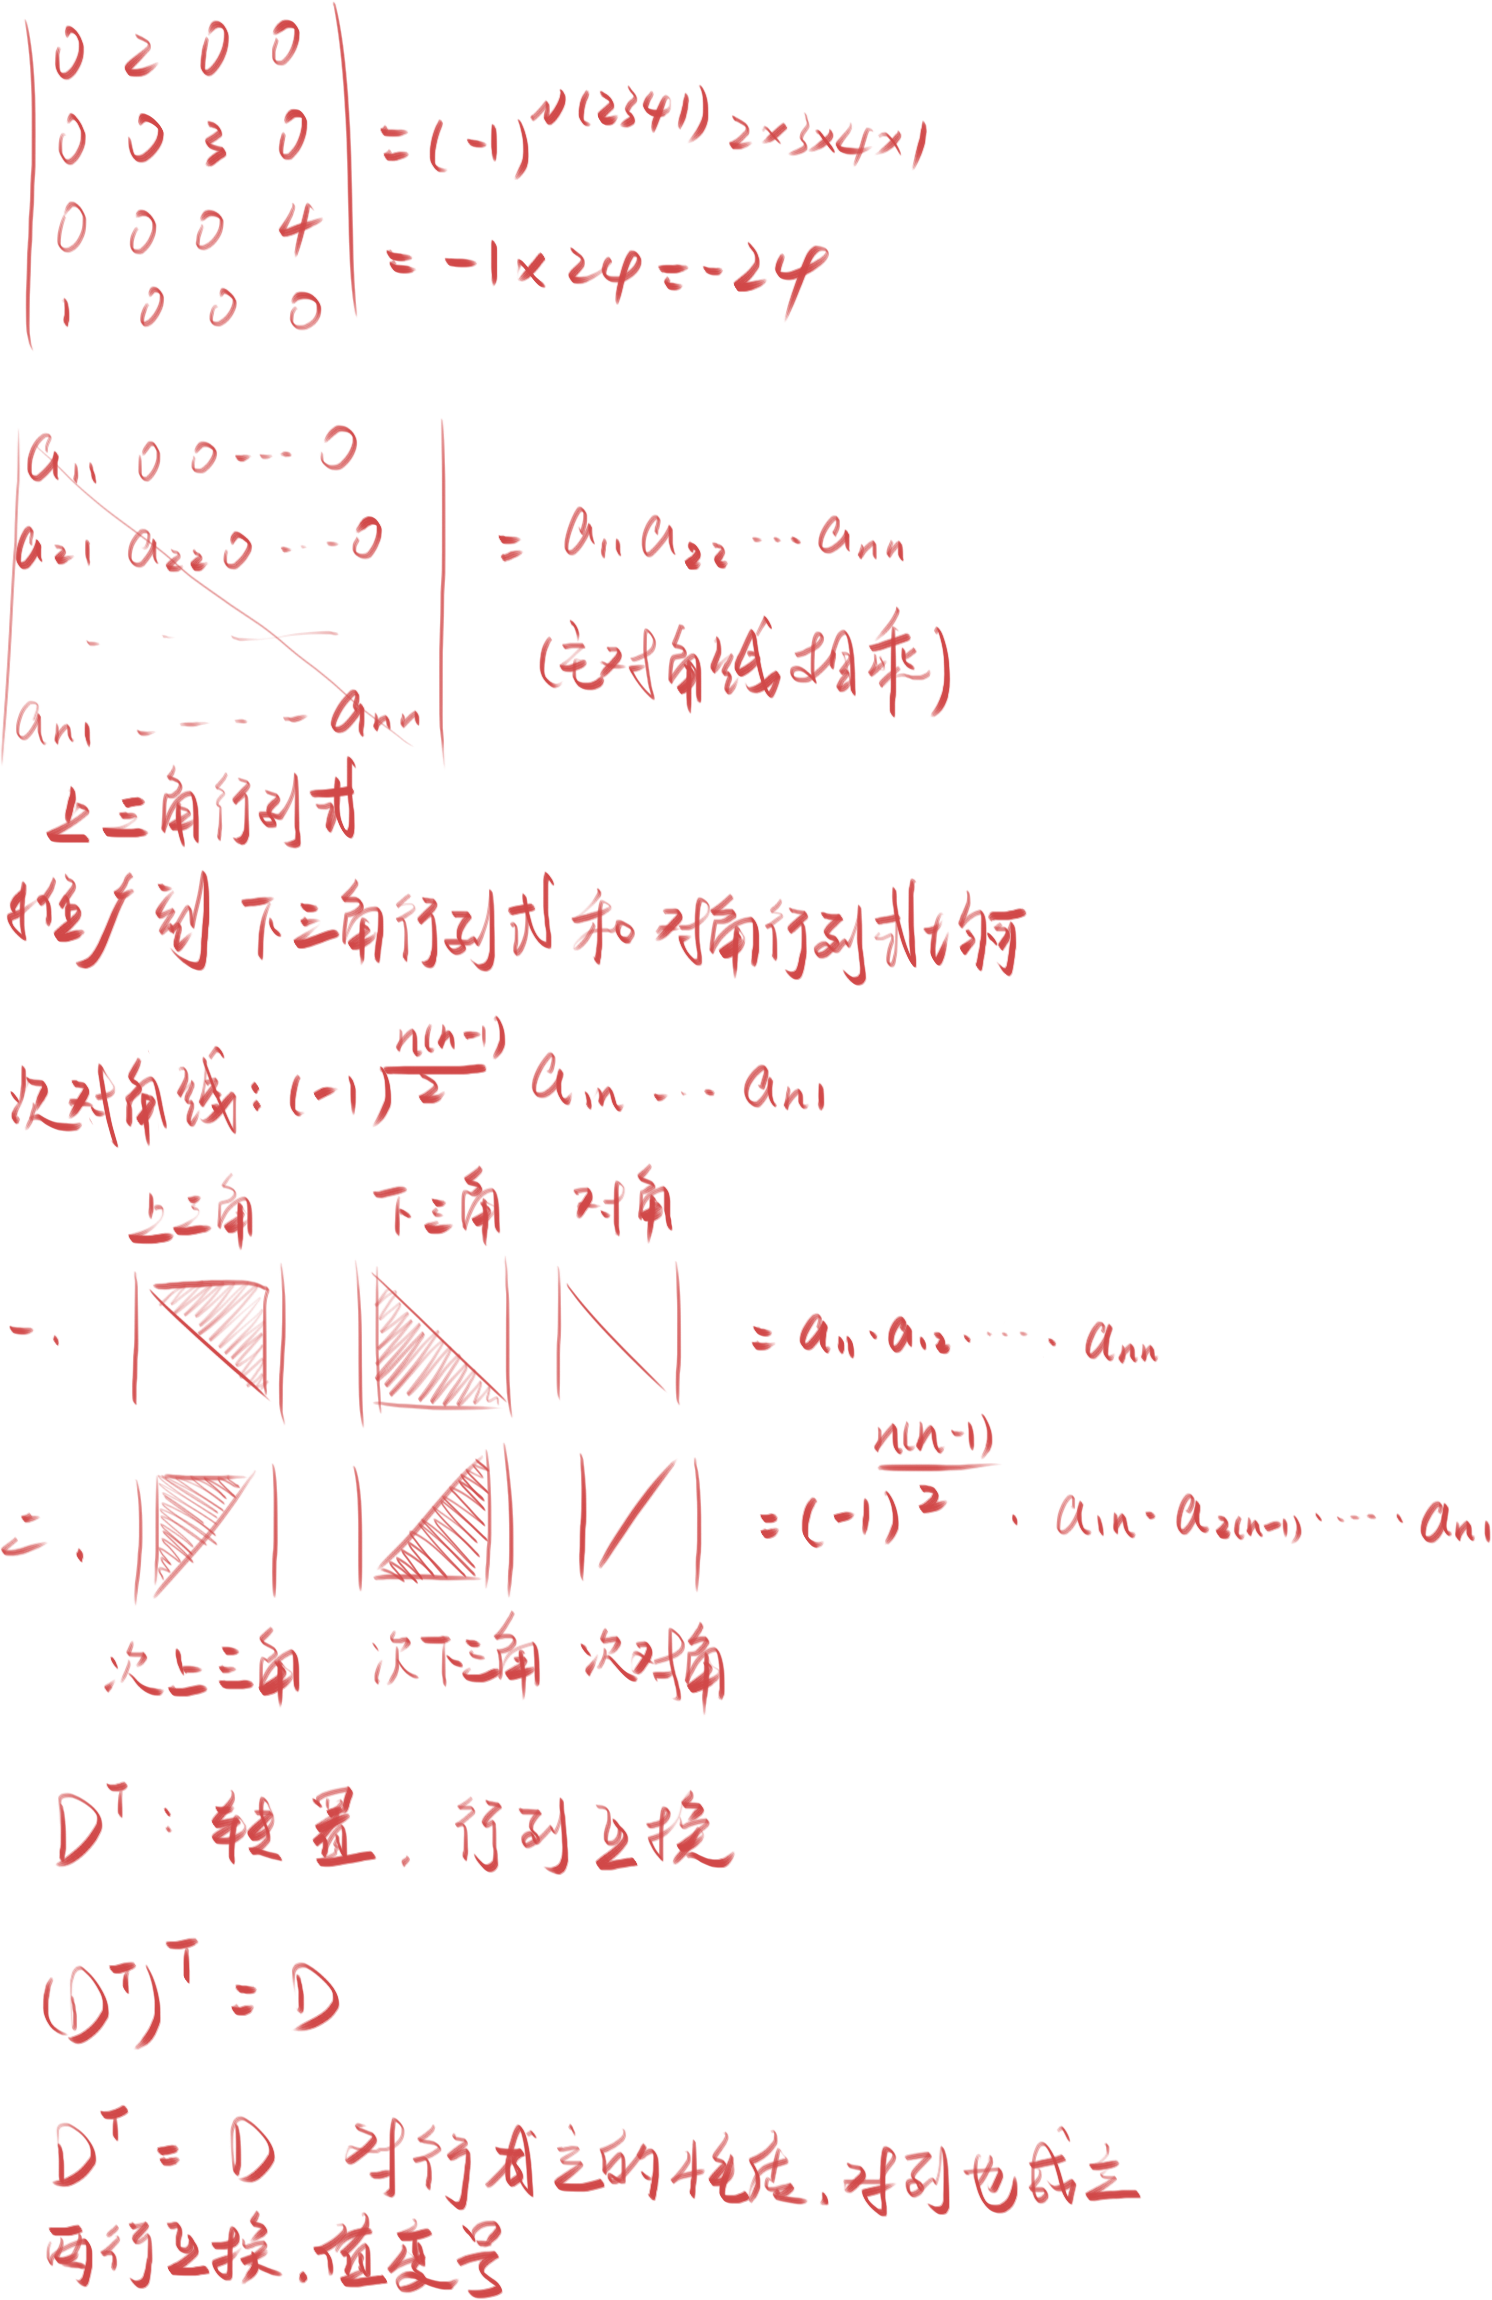 0 2 0 0
0 0 3 0 =(-1)^{N(2341)} 2×3×4×1
0 0 0 4 =-1×24=-24
1 0 0 0
a₁₁ 0 0 ... 0
a₂₁ a₂₂ 0 ... 0 = a₁₁ a₂₂ ... aₙₙ
(主对角线相乘)
aₙ₁ ... aₙₙ
上三角行列式
推广到下三角行列式和对角行列式均可
次对角线:(-1)^{n(n-1)/2} a₁ₙ ... aₙ₁
上三角 下三角 对角
一. = a₁₁·a₁₂·...·aₙₙ
二. =(-1)^{n(n-1)/2}·a₁ₙ·a₂₍ₙ₋₁₎·...·aₙ₁
次上三角 次下三角 次对角
Dᵀ:转置.行列互换
(Dᵀ)ᵀ=D
Dᵀ=D 对行成立的性质.对列也成立
两行互换.值变号